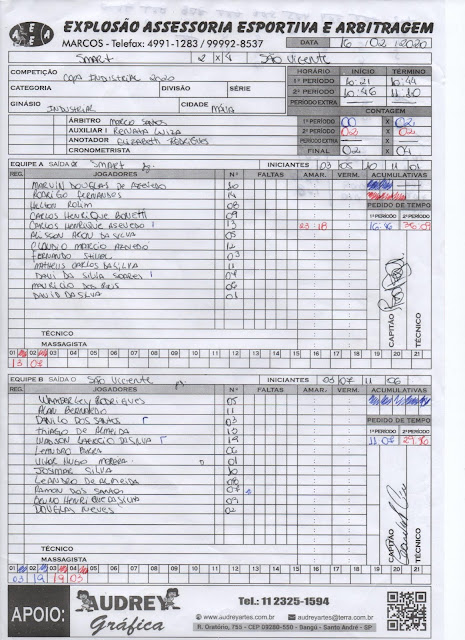 EXPLOSÃO ASSESSORIA ESPORTIVA E ARBITRAGEM
MARCOS - Telefax: 4991-1283 / 99992-8537 DATA 16 / 02 / 2020
SMART 2 X 4 SÃO VICENTE
COMPETIÇÃO COPA INDUSTRIAL 2020 HORÁRIO INÍCIO TÉRMINO
1º PERÍODO 10:21 10:44
CATEGORIA DIVISÃO SÉRIE 2º PERÍODO 10:46 11:10
PERÍODO EXTRA
GINÁSIO INDUSTRIAL CIDADE MAUÁ CONTAGEM
ÁRBITRO MARCIO SANTOS 1º PERÍODO 00 X 02
AUXILIAR I RENATA LUIZA 2º PERÍODO 02 X 02
ANOTADOR ELIZABETH RODRIGUES PERÍODO EXTRA X
CRONOMETRISTA FINAL 02 X 04
EQUIPE A SAÍDA SMART INICIANTES 03 05 10 11 01
REG. JOGADORES Nº FALTAS AMAR. VERM. ACUMULATIVAS
MARVIN DOUGLAS DE AZEVEDO 10
RODRIGO FERNANDES 14
HELTON ROLIM 08 PEDIDO DE TEMPO
CARLOS HENRIQUE BONETTI 09 1º PERÍODO 2º PERÍODO
CARLOS HENRIQUE AZEVEDO 13
ALISSON ARON DA SILVA 05
CLAUDIO MARCIO AZEVEDO 12
FERNANDO 03
MATHEUS CARLOS DA SILVA 11
DAVI DA SILVA SOARES 07
MAURICIO DOS REIS 06
DAVID DA SILVA 01
CAPITÃO
TÉCNICO
TÉCNICO
MASSAGISTA
01 02 03 04 05 06 07 08 09 10 11 12 13 14 15 16 17 18 19 20 21
13 03
EQUIPE B SAÍDA SÃO VICENTE INICIANTES 03 07 11 06
REG. JOGADORES Nº FALTAS AMAR. VERM. ACUMULATIVAS
WAMBERLEY RODRIGUES 05
ALAN BERNARDO 11
DANILO DOS SANTOS 03 PEDIDO DE TEMPO
THIAGO DE ALMEIDA 10 1º PERÍODO 2º PERÍODO
DA SILVA 19
LEANDRO 06
VITOR HUGO MOREIRA 01
JOSIMAR SILVA 10
LEANDRO DE ALMEIDA 08
RAMON DOS SANTOS 07
BRUNO HENRIQUE DA SILVA 09
DOUGLAS NEVES 02
CAPITÃO
TÉCNICO
TÉCNICO
MASSAGISTA
01 02 03 04 05 06 07 08 09 10 11 12 13 14 15 16 17 18 19 20 21
03 19 19 03
APOIO: AUDREY Gráfica
Tel.: 11 2325-1594
www.audreyartes.com.br audreyartes@terra.com.br
R. Oratório, 755 - CEP 09280-550 - Bangú - Santo André - SP